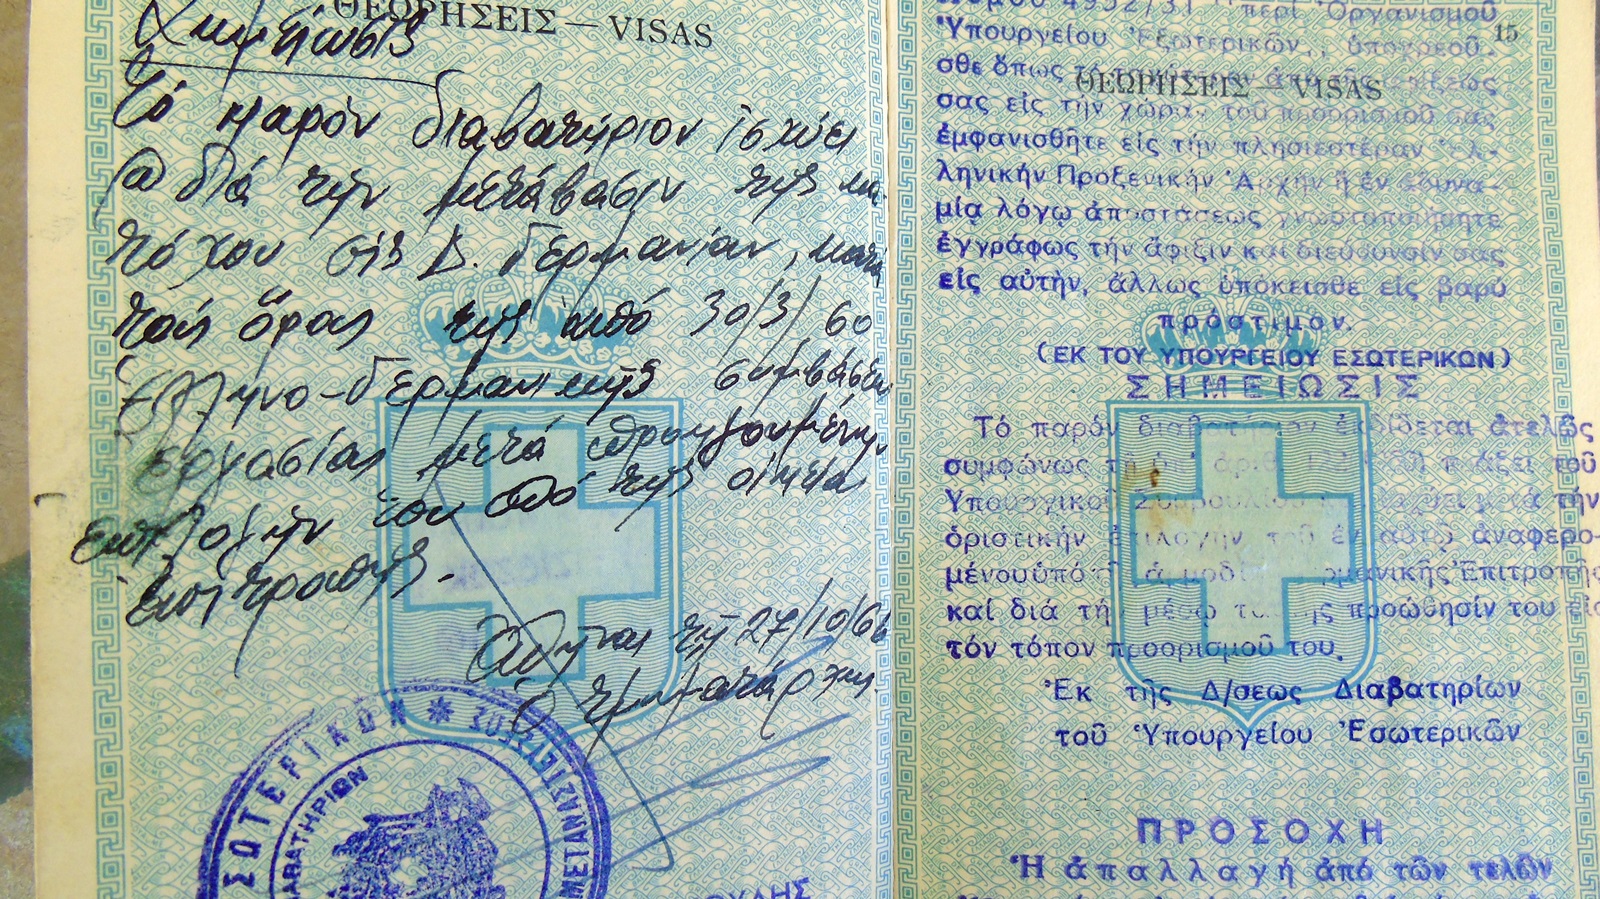 ΘΕΩΡΗΣΕΙΣ — VISAS
Σημείωσις
Τό παρόν διαβατήριον ἰσχύει
διά τήν μετάβασιν τῆς κα-
τόχου εἰς Δ. Γερμανίαν, κατά
τούς ὅρους τῆς ἀπό 30/3/60
Ἑλληνο-Γερμανικῆς συμβάσεως
ἐργασίας μετά προηγουμένην
ἐπιλογήν του ὑπό τῆς οἰκεία
ἐπιτροπῆς.-
Ἀθῆναι τῇ 27/10/66
Ὁ τμηματάρχης
ΣΩΤΕΡΙΚΩΝ
ΜΕΤΑΝΑΣΤΕΥΣΕΩΣ
ΔΙΑΒΑΤΗΡΙΩΝ
ΟΥΛΗΣ
15
4952/31 "περί Ὀργανισμοῦ
Ὑπουργείου Ἐξωτερικῶν,, ὑποχρεοῦ-
ΘΕΩΡΗΣΕΙΣ — VISAS
σθε ὅπως ἀπό τῆς ἀφίξεως
σας εἰς τήν χώραν τοῦ προορισμοῦ σας
ἐμφανισθῆτε εἰς τήν πλησιεστέραν Ἑλ-
ληνικήν Προξενικήν Ἀρχήν ἤ ἐν ἀδυνα-
μίᾳ λόγῳ ἀποστάσεως γνωστοποιήσητε
ἐγγράφως τήν ἄφιξιν καί διεύθυνσιν σας
εἰς αὐτήν, ἄλλως ὑπόκεισθε εἰς βαρύ
πρόστιμον.
(ΕΚ ΤΟΥ ΥΠΟΥΡΓΕΙΟΥ ΕΣΩΤΕΡΙΚΩΝ)
ΣΗΜΕΙΩΣΙΣ
Τό παρόν διαβατήριον ἐκδίδεται ἀτελῶς
συμφώνως τῇ ὑπ' ἀριθ. πράξει τοῦ
Ὑπουργικοῦ Συμβουλίου μετά τήν
ὁριστικήν ἐπιλογήν τοῦ ἐν αὐτῷ ἀναφερο-
μένου ὑπό τῆς ἁρμοδίας Γερμανικῆς Ἐπιτροπῆς
καί διά τήν μέσῳ ταύτης προώθησίν του εἰς
τόν τόπον προορισμοῦ του.
Ἐκ τῆς Δ/σεως Διαβατηρίων
τοῦ Ὑπουργείου Ἐσωτερικῶν
ΠΡΟΣΟΧΗ
Ἡ ἀπαλλαγή ἀπό τῶν τελῶν